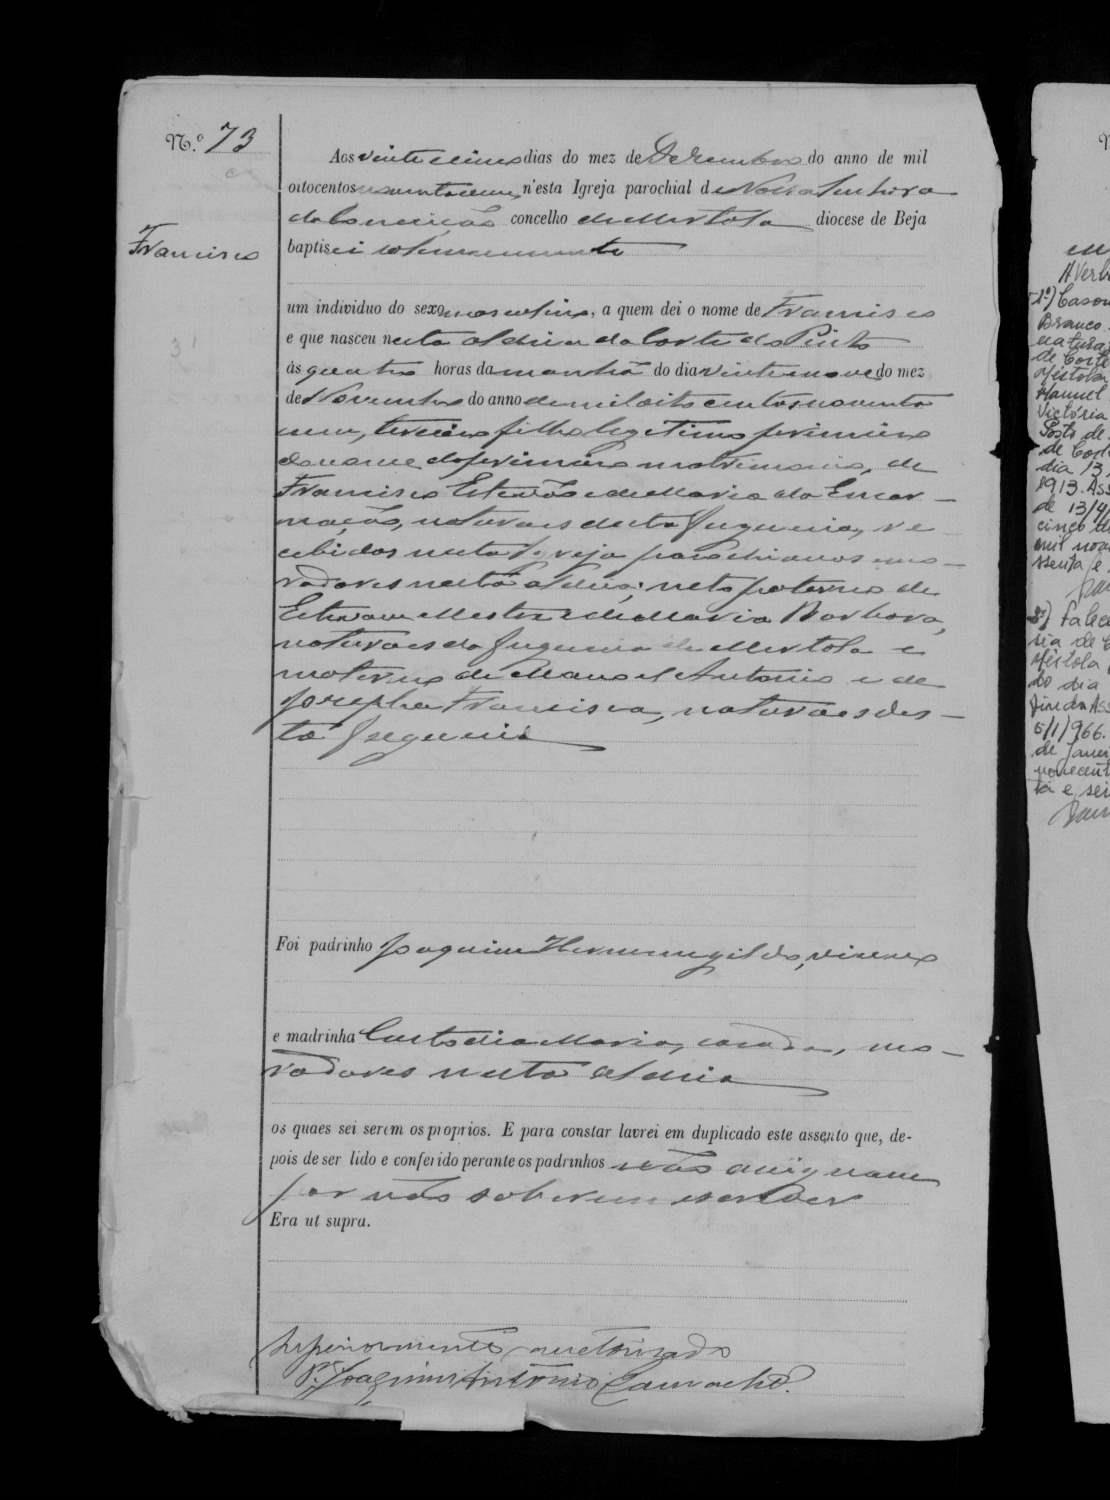 N.º 73
Francisco
Aos vinte e cinco dias do mez de Dezembro do anno de mil
oitocentos noventa e um, n'esta Igreja parochial de Nossa Senhora
da Conceição concelho de Mertola diocese de Beja
baptisei solemnemente
um individuo do sexo masculino, a quem dei o nome de Francisco
e que nasceu nesta aldeia da Corte do Pinto
ás quatro horas da manhã do dia vinte e nove do mez
de Novembro do anno de mil oito centos noventa
e um, terceiro filho legitimo primeiro
do nome do primeiro matrimonio, de
Francisco Estevão e de Maria da Encar-
nação, naturaes desta freguezia, re
cebidos nesta Igreja parochianos e mo-
radores nesta aldeia; neto paterno de
Estevam Mestre e de Maria Barbora,
naturaes da freguezia de Mertola e
materno de Manoel Antonio e de
Josepha Francisca, naturaes des-
ta freguezia
Foi padrinho Joaquim Hermenegildo,
e madrinha Custodia Maria, casada, mo-
radores nesta aldeia
os quaes sei serem os proprios. E para constar lavrei em duplicado este assento que, de-
pois de ser lido e conferido perante os padrinhos não assignam
por não saberem escrever
Era ut supra.
Superiormente auctorizado
P.e Joaquim Antonio Camacho.
1º) Casou
Branco
de Corte
Mertola
Manuel
Victória
Posto de
dia 13
1913. Ass
de 13/4/
cinco de
mil nov
ssenta e
2º) Falec
Mértola
do dia
5/1/966.
de Janei
novecent
ta e seis